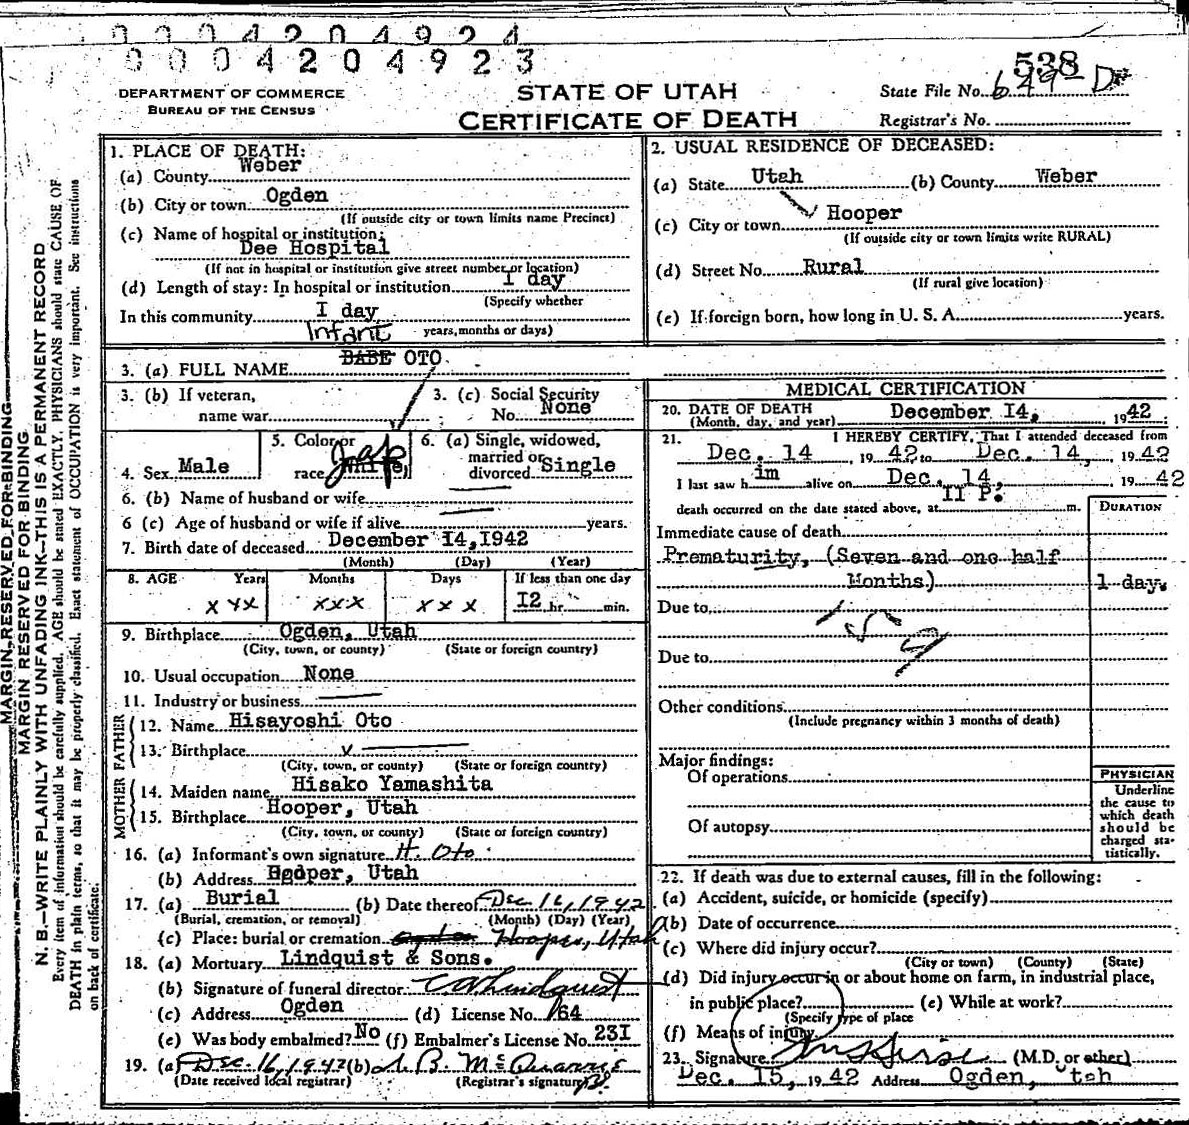 0004204924
0004204923
538
DEPARTMENT OF COMMERCE
BUREAU OF THE CENSUS
STATE OF UTAH
CERTIFICATE OF DEATH
State File No. 649 D
Registrar's No.
MARGIN RESERVED FOR BINDING
MARGIN RESERVED FOR BINDING
N. B.—WRITE PLAINLY WITH UNFADING INK—THIS IS A PERMANENT RECORD
Every item of information should be carefully supplied. AGE should be stated EXACTLY. PHYSICIANS should state CAUSE OF
DEATH in plain terms, so that it may be properly classified. Exact statement of OCCUPATION is very important. See instructions
on back of certificate.
1. PLACE OF DEATH:
(a) County Weber
(b) City or town Ogden
(If outside city or town limits name Precinct)
(c) Name of hospital or institution:
Dee Hospital
(If not in hospital or institution give street number or location)
(d) Length of stay: In hospital or institution I day
(Specify whether
In this community I day
years, months or days)
2. USUAL RESIDENCE OF DECEASED:
(a) State Utah (b) County Weber
(c) City or town Hooper
(If outside city or town limits write RURAL)
(d) Street No. Rural
(If rural give location)
(e) If foreign born, how long in U. S. A. years.
Infant
3. (a) FULL NAME BABE OTO
3. (b) If veteran,
name war
3. (c) Social Security
No. None
4. Sex Male
5. Color or
race White Jap
6. (a) Single, widowed,
married or
divorced Single
6. (b) Name of husband or wife
6 (c) Age of husband or wife if alive years.
7. Birth date of deceased December I4, 1942
(Month) (Day) (Year)
8. AGE Years Months Days If less than one day
xxx xxx xxx I2 hr. min.
9. Birthplace Ogden, Utah
(City, town, or county) (State or foreign country)
10. Usual occupation None
11. Industry or business
FATHER
12. Name Hisayoshi Oto
13. Birthplace
(City, town, or county) (State or foreign country)
MOTHER
14. Maiden name Hisako Yamashita
15. Birthplace Hooper, Utah
(City, town, or county) (State or foreign country)
16. (a) Informant's own signature H. Oto
(b) Address Hooper, Utah
17. (a) Burial (b) Date thereof Dec 16, 1942
(Burial, cremation, or removal) (Month) (Day) (Year)
(c) Place: burial or cremation Ogden Hooper, Utah
18. (a) Mortuary Lindquist & Sons.
(b) Signature of funeral director C A Lindquist
(c) Address Ogden (d) License No. 164
(e) Was body embalmed? No (f) Embalmer's License No. 23I
19. (a) Dec. 16, 1942 (b)
(Date received local registrar) (Registrar's signature)
MEDICAL CERTIFICATION
20. DATE OF DEATH December I4, 1942
(Month, day, and year)
21. I HEREBY CERTIFY, That I attended deceased from
Dec. 14, 1942 to Dec. 14, 1942
I last saw h im alive on Dec. 14, 1942
death occurred on the date stated above, at II P. m.
DURATION
Immediate cause of death
Prematurity, (Seven and one half
Months) 1 day.
Due to
159
Due to
Other conditions
(Include pregnancy within 3 months of death)
Major findings:
Of operations
Of autopsy
PHYSICIAN
Underline
the cause to
which death
should be
charged sta-
tistically.
22. If death was due to external causes, fill in the following:
(a) Accident, suicide, or homicide (specify)
(b) Date of occurrence
(c) Where did injury occur?
(City or town) (County) (State)
(d) Did injury occur in or about home on farm, in industrial place,
in public place? (e) While at work?
(Specify type of place
(f) Means of injury
23. Signature (M.D. or other)
Dec. 15, 1942 Address Ogden, Utah